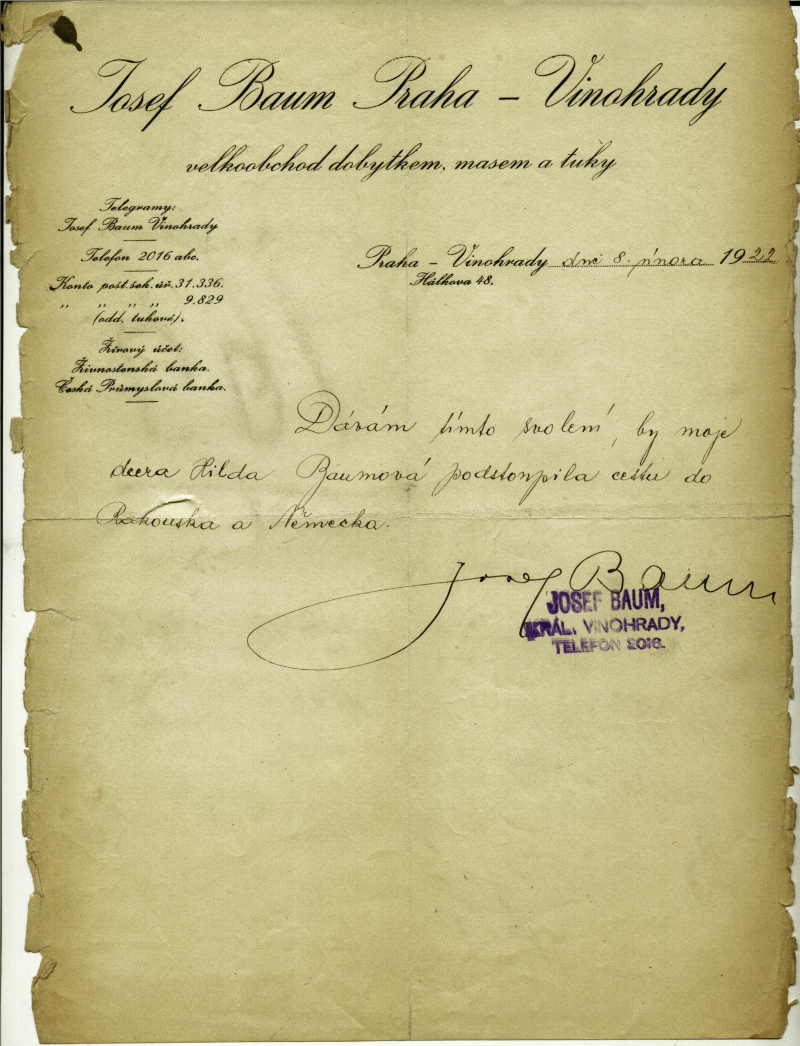 Josef Baum Praha – Vinohrady
velkoobchod dobytkem, masem a tuky
Telegramy:
Josef Baum Vinohrady
Telefon 2016 abc.
Konto pošt. sek. úř. 31.336.
„ „ „ „ 9.829
(odd. tukové).
Žirový účet:
Živnostenská banka.
Česká Průmyslová banka.
Praha – Vinohrady dne 8. února 1922
Hálkova 48.
Dávám tímto svolení, by moje
dcera Hilda Baumová podstoupila cestu do
Rakouska a Německa.
Josef Baum
JOSEF BAUM,
KRÁL. VINOHRADY,
TELEFON 2016.